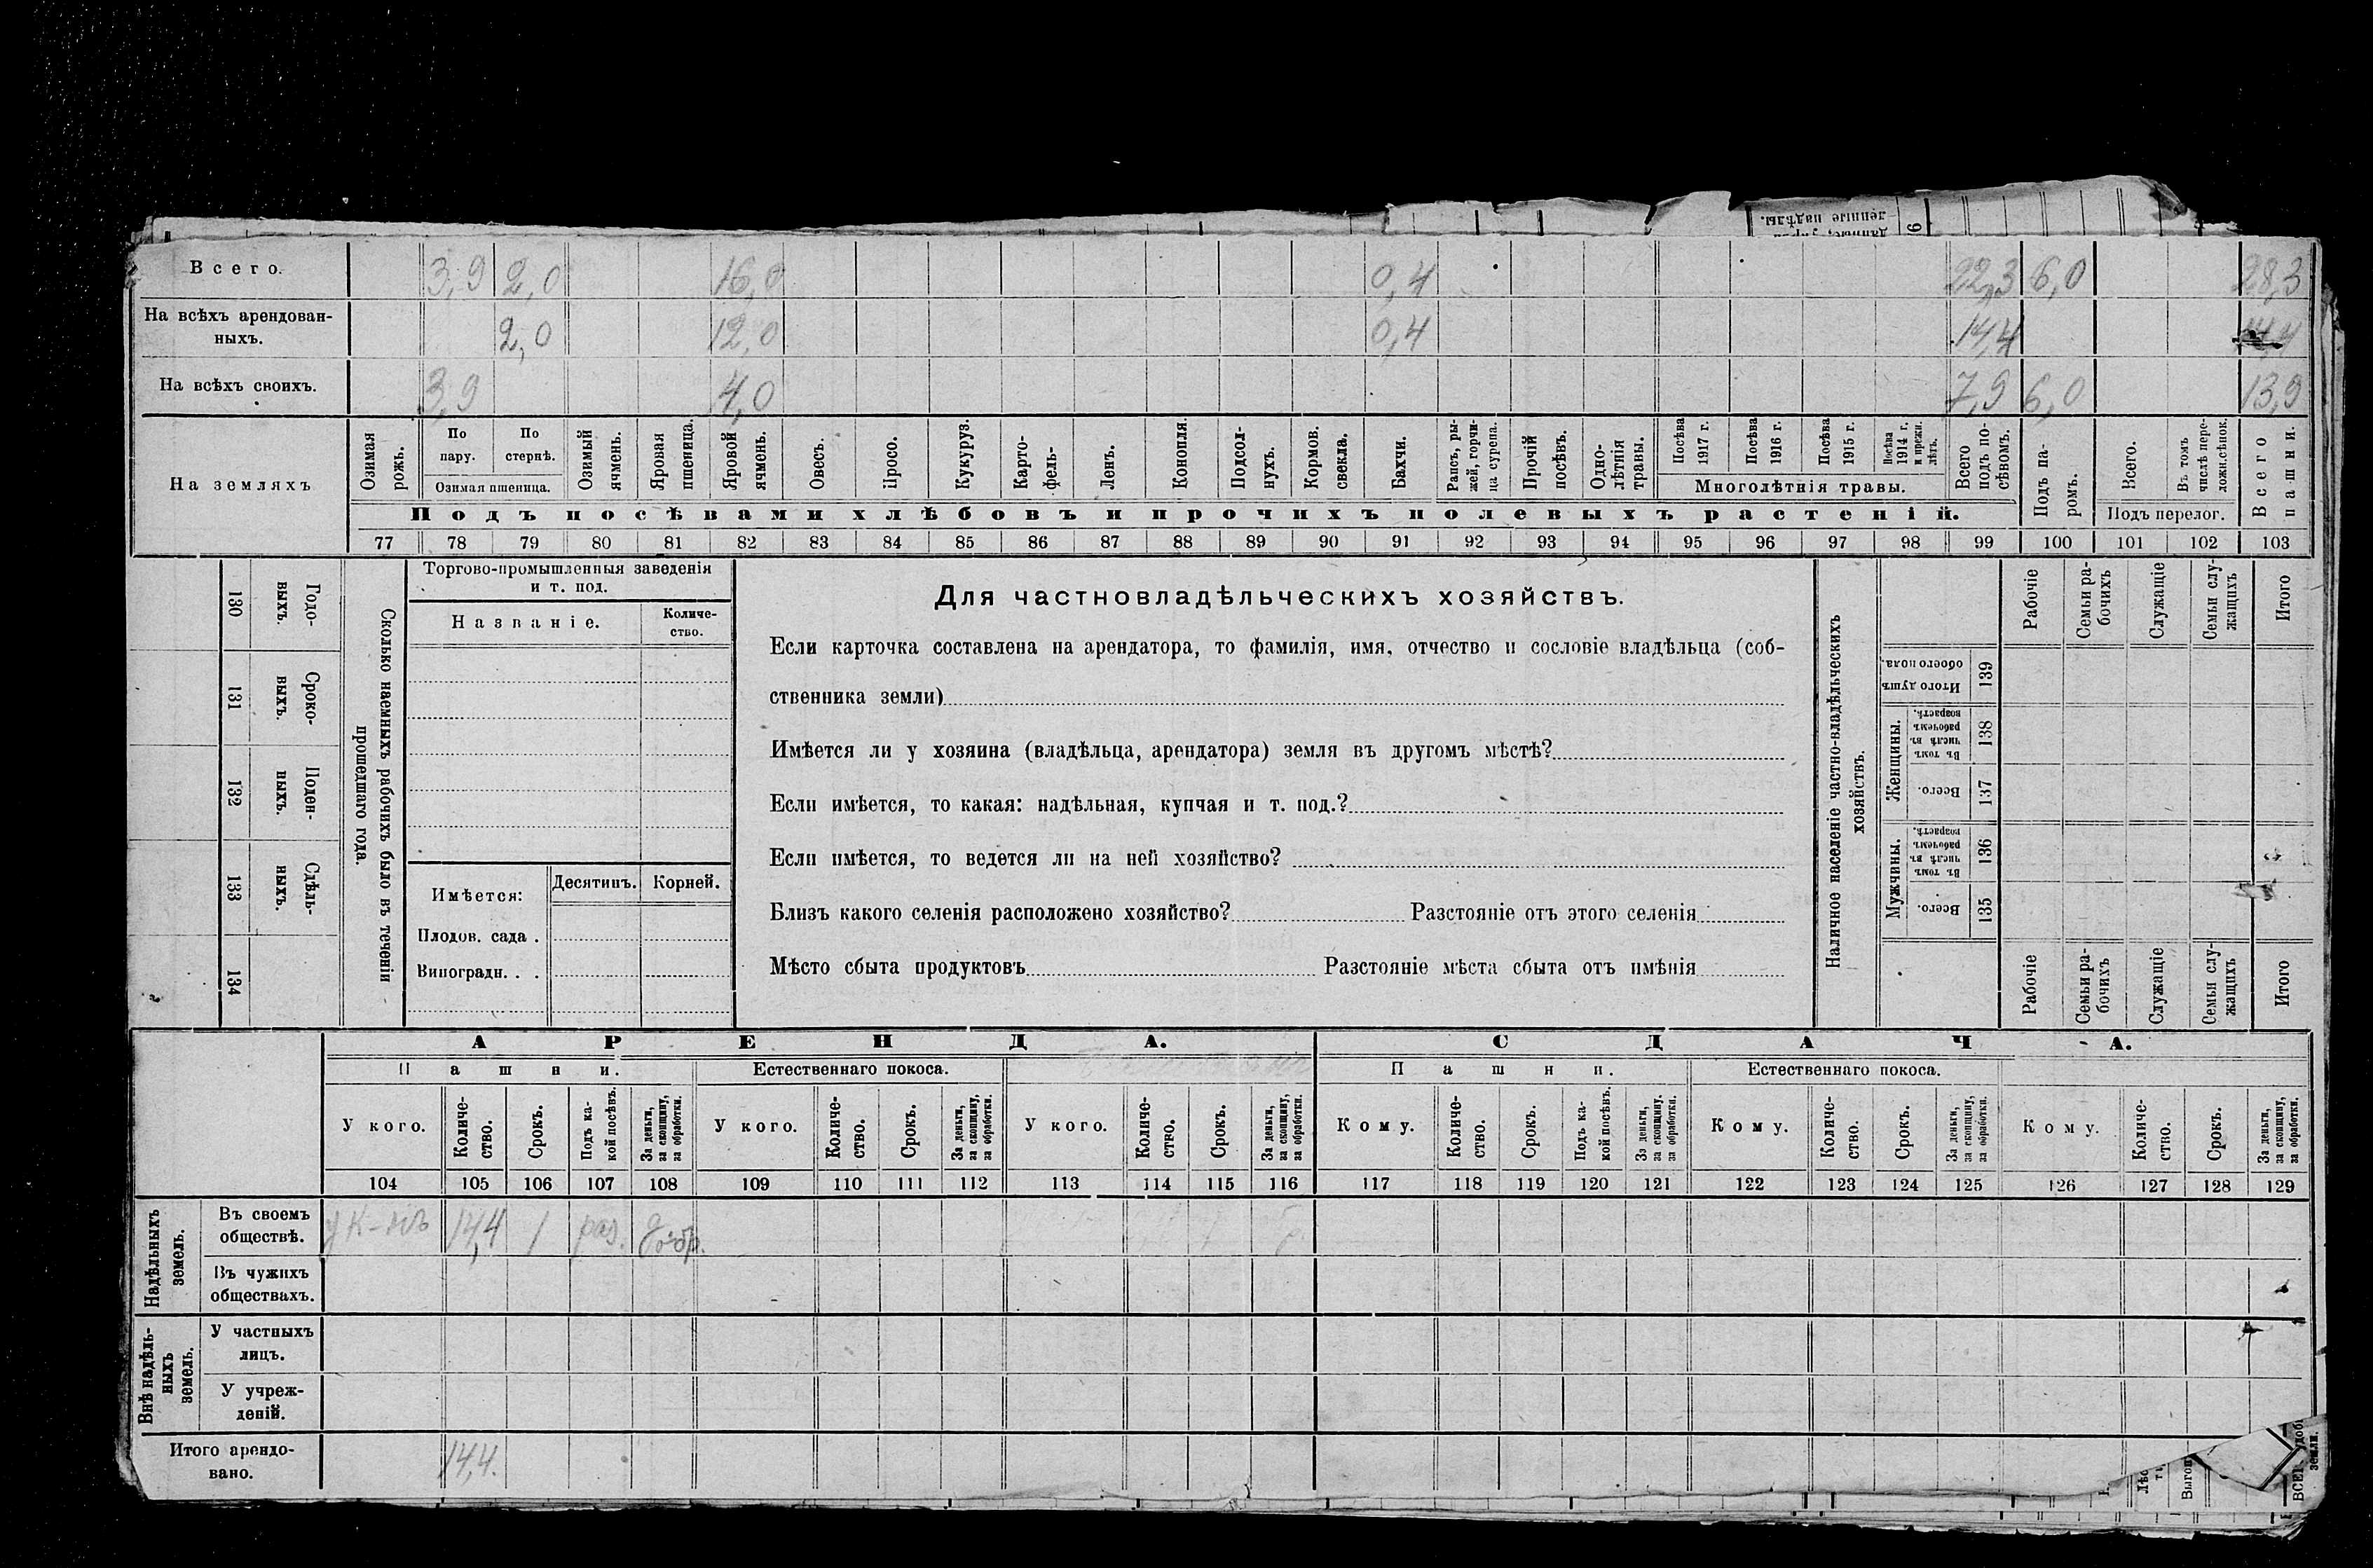 деннные
надѣлы.
Всего. 3,9 2,0 16,0 0,4 22,3 6,0 28,3
На всѣхъ арендован-
ныхъ. 2,0 12,0 0,4 14,4 14,4
На всѣхъ своихъ. 3,9 4,0 7,9 6,0 13,9
На земляхъ
Озимая
рожь.
По
пару.
По
стернѣ.
Озимая пшеница.
Озимый
ячмень.
Яровая
пшеница.
Яровой
ячмень.
Овесъ.
Просо.
Кукуруз.
Карто-
фель-
Ленъ.
Конопля.
Подсол-
нухъ.
Кормов.
свекла.
Бахчи.
Рапсъ, ры-
жей, горчи-
ца сурепа.
Прочій
посѣвъ.
Одно-
лѣтнія
травы.
Посѣва
1917 г.
Посѣва
1916 г.
Посѣва
1915 г.
Посѣва
1914 г.
и прежн.
лѣтъ.
Многолѣтнія травы.
Всего
подъ по-
сѣвомъ.
Подъ па-
ромъ.
Всего.
Въ томъ
числѣ пере-
ложн.сѣнок.
Подъ перелог.
Всего
пашни.
Подъ посѣвами хлѣбовъ и прочихъ полевыхъ растеній.
77 78 79 80 81 82 83 84 85 86 87 88 89 90 91 92 93 94 95 96 97 98 99 100 101 102 103
Годо-
выхъ.
130
Сроко-
выхъ.
131
Поден-
ныхъ.
132
Сдѣль-
ныхъ.
133
134
Сколько наемныхъ рабочихъ было въ теченіи
прошедшаго года.
Торгово-промышленныя заведенія
и т. под.
Названіе.
Количе-
ство.
Имѣется:
Десятинъ. Корней.
Плодов. сада .
Виноградн. . .
Для частновладѣльческихъ хозяйствъ.
Если карточка составлена на арендатора, то фамилія, имя, отчество и сословіе владѣльца (соб-
ственника земли)
Имѣется ли у хозяина (владѣльца, арендатора) земля въ другомъ мѣстѣ?
Если имѣется, то какая: надѣльная, купчая и т. под.?
Если имѣется, то ведется ли на ней хозяйство?
Близъ какого селенія расположено хозяйство? Разстояніе отъ этого селенія
Мѣсто сбыта продуктовъ Разстояніе мѣста сбыта отъ имѣнія
Наличное населеніе частно-владѣльческихъ
хозяйствъ.
Рабочіе
Семьи ра-
бочихъ
Служащіе
Семьи слу-
жащихъ
Итого
Итого душъ
обоего пола.
139
Женщины.
Въ томъ
числѣ въ
рабочемъ
возрастѣ.
138
Всего.
137
Мужчины.
Въ томъ
числѣ въ
рабочемъ
возрастѣ.
136
Всего.
135
Рабочіе
Семьи ра-
бочихъ
Служащіе
Семьи слу-
жащихъ
Итого
АРЕНДА. СДАЧА.
Пашни. Естественнаго покоса. Пашни. Естественнаго покоса.
У кого.
Количе-
ство.
Срокъ.
Подъ ка-
кой посѣвъ.
За деньги,
за скопщину,
за обработки.
У кого.
Количе-
ство.
Срокъ.
За деньги,
за скопщину,
за обработки.
У кого.
Количе-
ство.
Срокъ.
За деньги,
за скопщину,
за обработки.
Кому.
Количе-
ство.
Срокъ.
Подъ ка-
кой посѣвъ.
За деньги,
за скопщину.
за обработки.
Кому.
Количе-
ство.
Срокъ.
За деньги,
за скопщину,
за обработки.
Кому.
Количе-
ство.
Срокъ.
За деньги,
за скопщину,
за обработки.
104 105 106 107 108 109 110 111 112 113 114 115 116 117 118 119 120 121 122 123 124 125 126 127 128 129
Надѣльныхъ
земель.
Въ своемъ
обществѣ. 14,4 1 раз.
Въ чужихъ
обществахъ.
Внѣ надѣль-
ныхъ
земель.
У частныхъ
лицъ.
У учреж-
деній.
Итого арендо-
вано. 14,4.